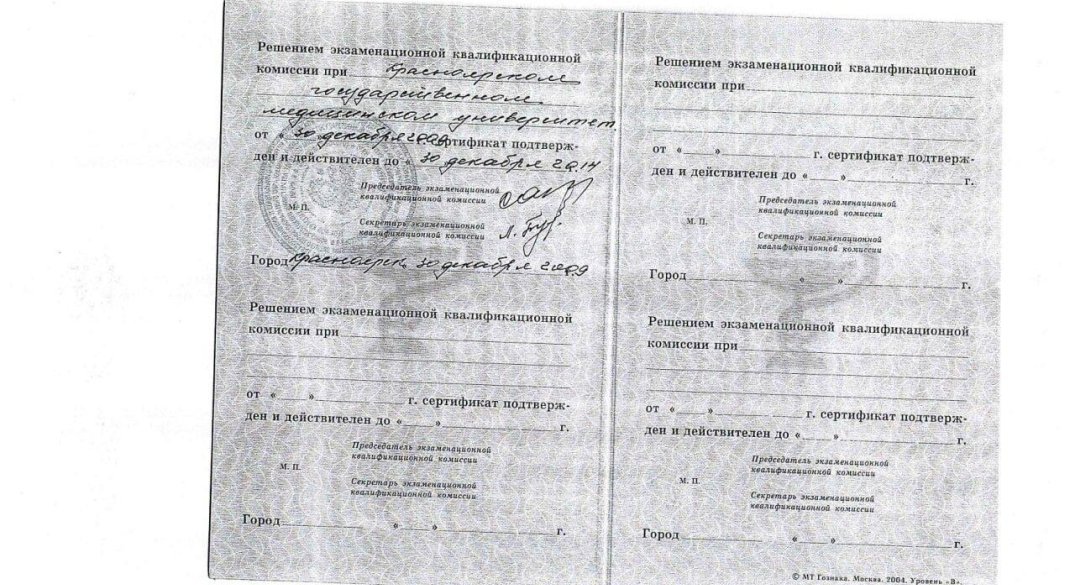 Решением экзаменационной квалификационной
комиссии при Красноярском
государственном
медицинском университет
от « 30 » декабря 2009 сертификат подтверж-
ден и действителен до « 30 декабря 2014
Председатель экзаменационной
квалификационной комиссии
М. П.
Секретарь экзаменационной
квалификационной комиссии
Л. Бур
Город Красноярск, 30 декабря 2009
Решением экзаменационной квалификационной
комиссии при
от « » г. сертификат подтверж-
ден и действителен до « » г.
Председатель экзаменационной
квалификационной комиссии
М. П.
Секретарь экзаменационной
квалификационной комиссии
Город « » г.
Решением экзаменационной квалификационной
комиссии при
от « » г. сертификат подтверж-
ден и действителен до « » г.
Председатель экзаменационной
квалификационной комиссии
М. П.
Секретарь экзаменационной
квалификационной комиссии
Город « » г.
Решением экзаменационной квалификационной
комиссии при
от « » г. сертификат подтверж-
ден и действителен до « » г.
Председатель экзаменационной
квалификационной комиссии
М. П.
Секретарь экзаменационной
квалификационной комиссии
Город « » г.
© МТ Гознака. Москва. 2004. Уровень «В».